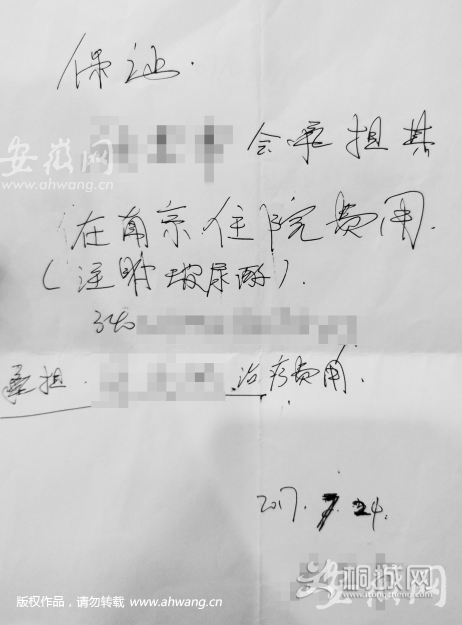 保证.
会承担其
安徽网
www.ahwang.cn
在南京住院费用.
(注射玻尿酸).
340
承担. 治疗费用.
2017. 7. 24.
安徽网
桐城网
itongcheng.com
版权作品，请勿转载 www.ahwang.cn